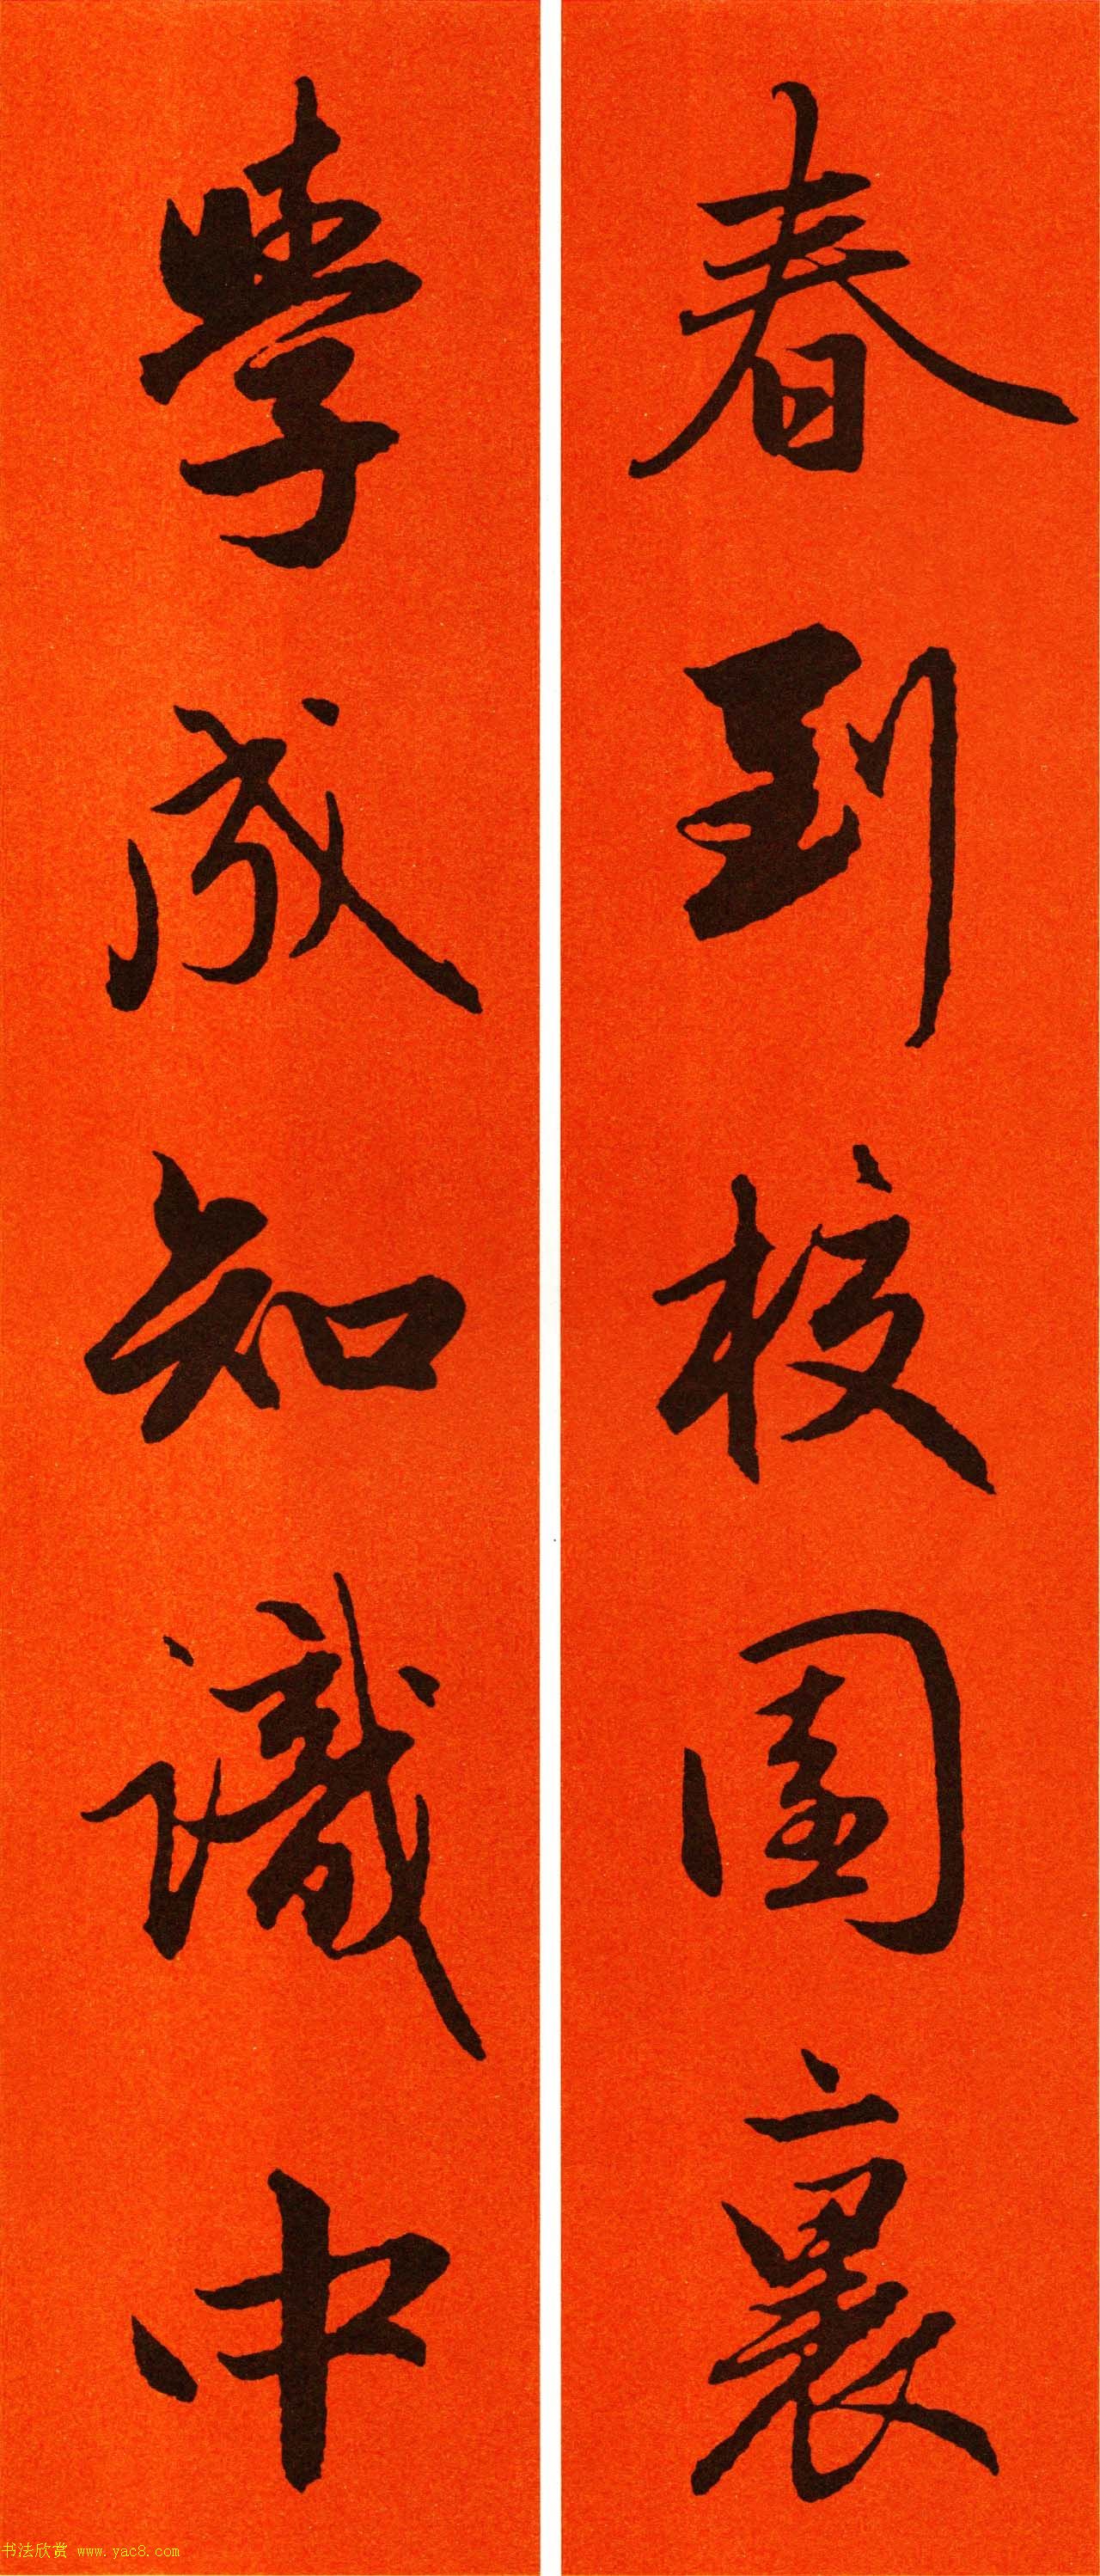 春到校園裏
學成知識中
书法欣赏 www.yac8.com